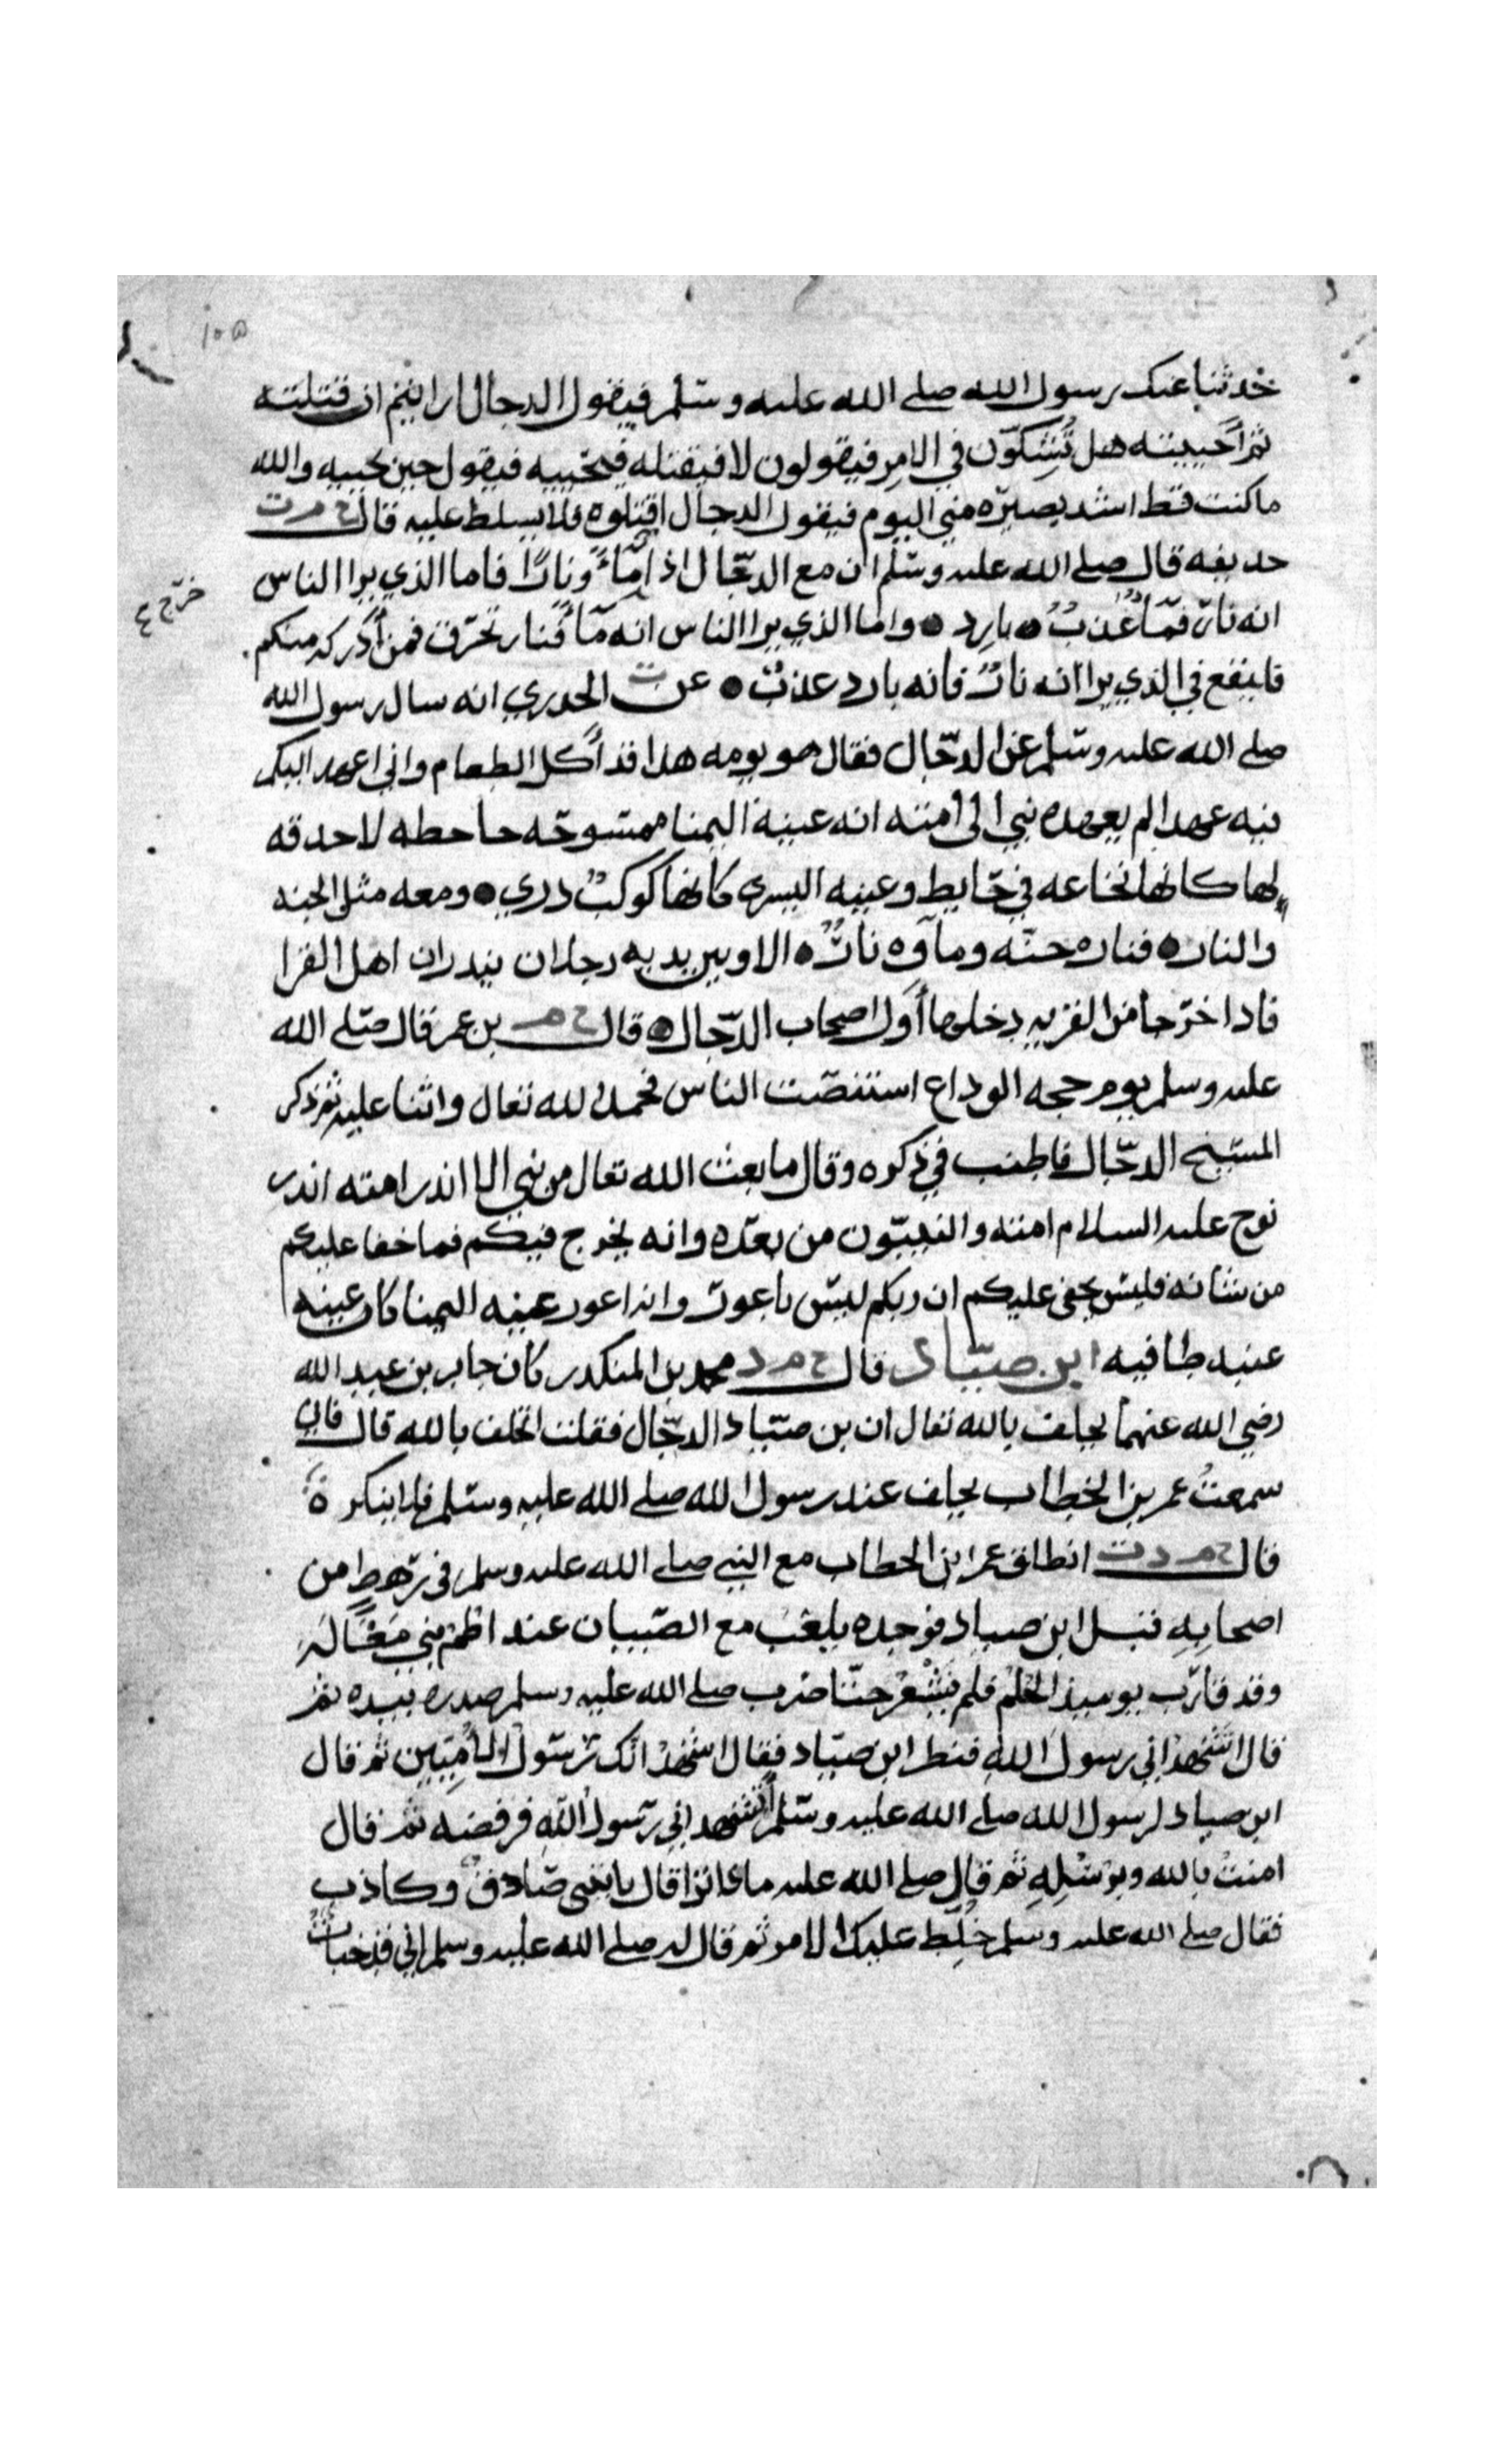 ١٠٥
حدثنا عنك رسول الله صلى الله عليه وسلم فيقول الدجال ارايتم ان قتلته
ثم أحييته هل تُشِكّون في الامر فيقولون لا فيقتله فيحييه فيقول حين يحييه والله
ما كنت قط اشد بصيره مني اليوم فيقول الدجال اقتلوه فلا يسلط عليه قال خ م ت
حديفه قال صلى الله عليه وسلم ان مع الدجّال اذا ماءً ونارًا فاما الذي يرا الناس
خرج ع
انه نار فمآ عُذبٌ بارد واما الذي يرا الناس انه مآ فنار تحرق فمن أدركه منكم
فاليقع في الذي يرا انه نارٌ فانه بارد عذبٌ عن ت الخدري انه سال رسول الله
صلى الله عليه وسلم عن الدجّال فقال هو يومه هذا قد أكل الطعام واني اعهد اليكم
فيه عهدا لم يعهده نبي الى أمته انه عينه اليمنا ممسوحه جاحظه لا حدقه
لها كانها نخاعه في حايط وعينه اليسرى كانها كوكبٌ دري ومعه مثل الجنه
والنار فناره جنّه ومآوه نارٌ الا وبين يديه رجلان ينذران اهل القرا
فاذا خرجا من القريه دخلوها أول اصحاب الدجّال قال خ م بن عمر قال صلى الله
عليه وسلم يوم حجه الوداع استنصت الناس فحمد الله تعال واثنا عليه ثم ذكر
المسيخ الدجّال فاطنب في ذكره وقال ما بعث الله تعال من نبي الا انذر امته انذر
نوح عليه السلام امته والنبيّون من بعده وانه يخرج فيكم فما خفا عليكم
من شانه فليس يخفى عليكم ان ربكم ليس باعور وانه اعور عينه اليمنا كان عينه
عنبه طافيه ابن صيّاد قال خ م د محمد بن المنكدر كان جابر بن عبد الله
رضي الله عنهما يحلف بالله تعال ان بن صيّاد الدجّال فقلت اتحلف بالله قال فاني
سمعتُ عمر بن الخطاب يحلف عند رسول الله صلى الله عليه وسلم فلا ينكره
قال خ م د ت انطلق عمر ابن الخطاب مع النبي صلى الله عليه وسلم في رهط من
اصحابِهِ قبل ابن صياد فوجده يلعب مع الصّبيان عند اطم بني مَغالة
وقد قارب يوميذ الحلم فلم يشعر حتّا ضرب صلى الله عليه وسلم صدره بيده ثم
قال اتشهد اني رسول الله فنظر ابن صيّاد فقال اشهد انك رسول الأميين ثم قال
ابن صياد لرسول الله صلى الله عليه وسلم أتشهد اني رسول الله فرفضه ثم قال
امنت بالله وبرسُلِهِ ثم قال صلى الله عليه ماذا ترا قال ياتيني صادقٌ وكاذب
فقال صلى الله عليه وسلم خُلِّط عليك الامر ثم قال له صلى الله عليه وسلم اني قد خبات